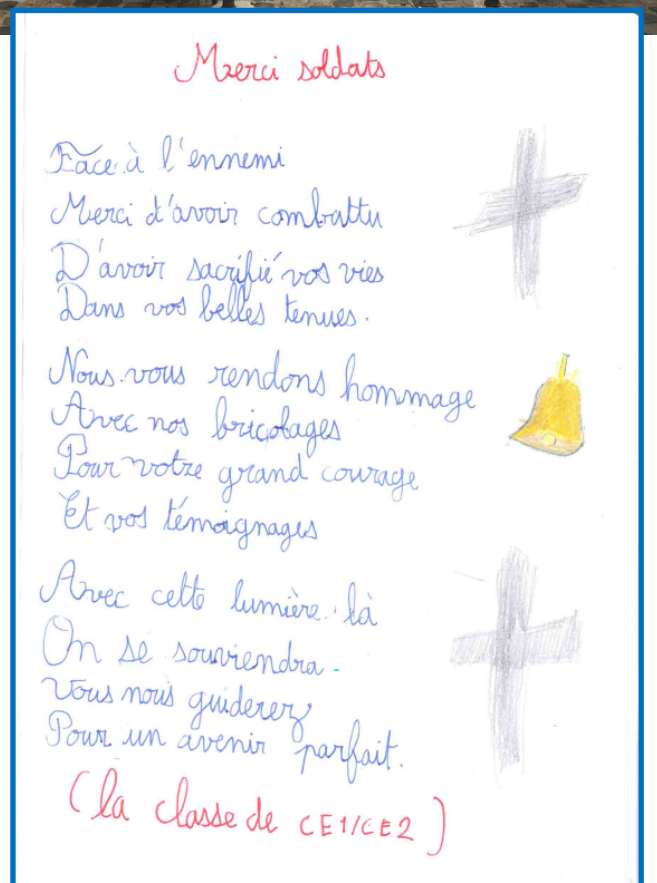 Merci soldats
Face à l'ennemi
Merci d'avoir combattu
D'avoir sacrifié vos vies
Dans vos belles tenues.
Nous vous rendons hommage
Avec nos bricolages
Pour votre grand courage
Et vos témoignages
Avec cette lumière là
On se souviendra.
Vous nous guiderez
Pour un avenir parfait.
(la classe de CE1/CE2)